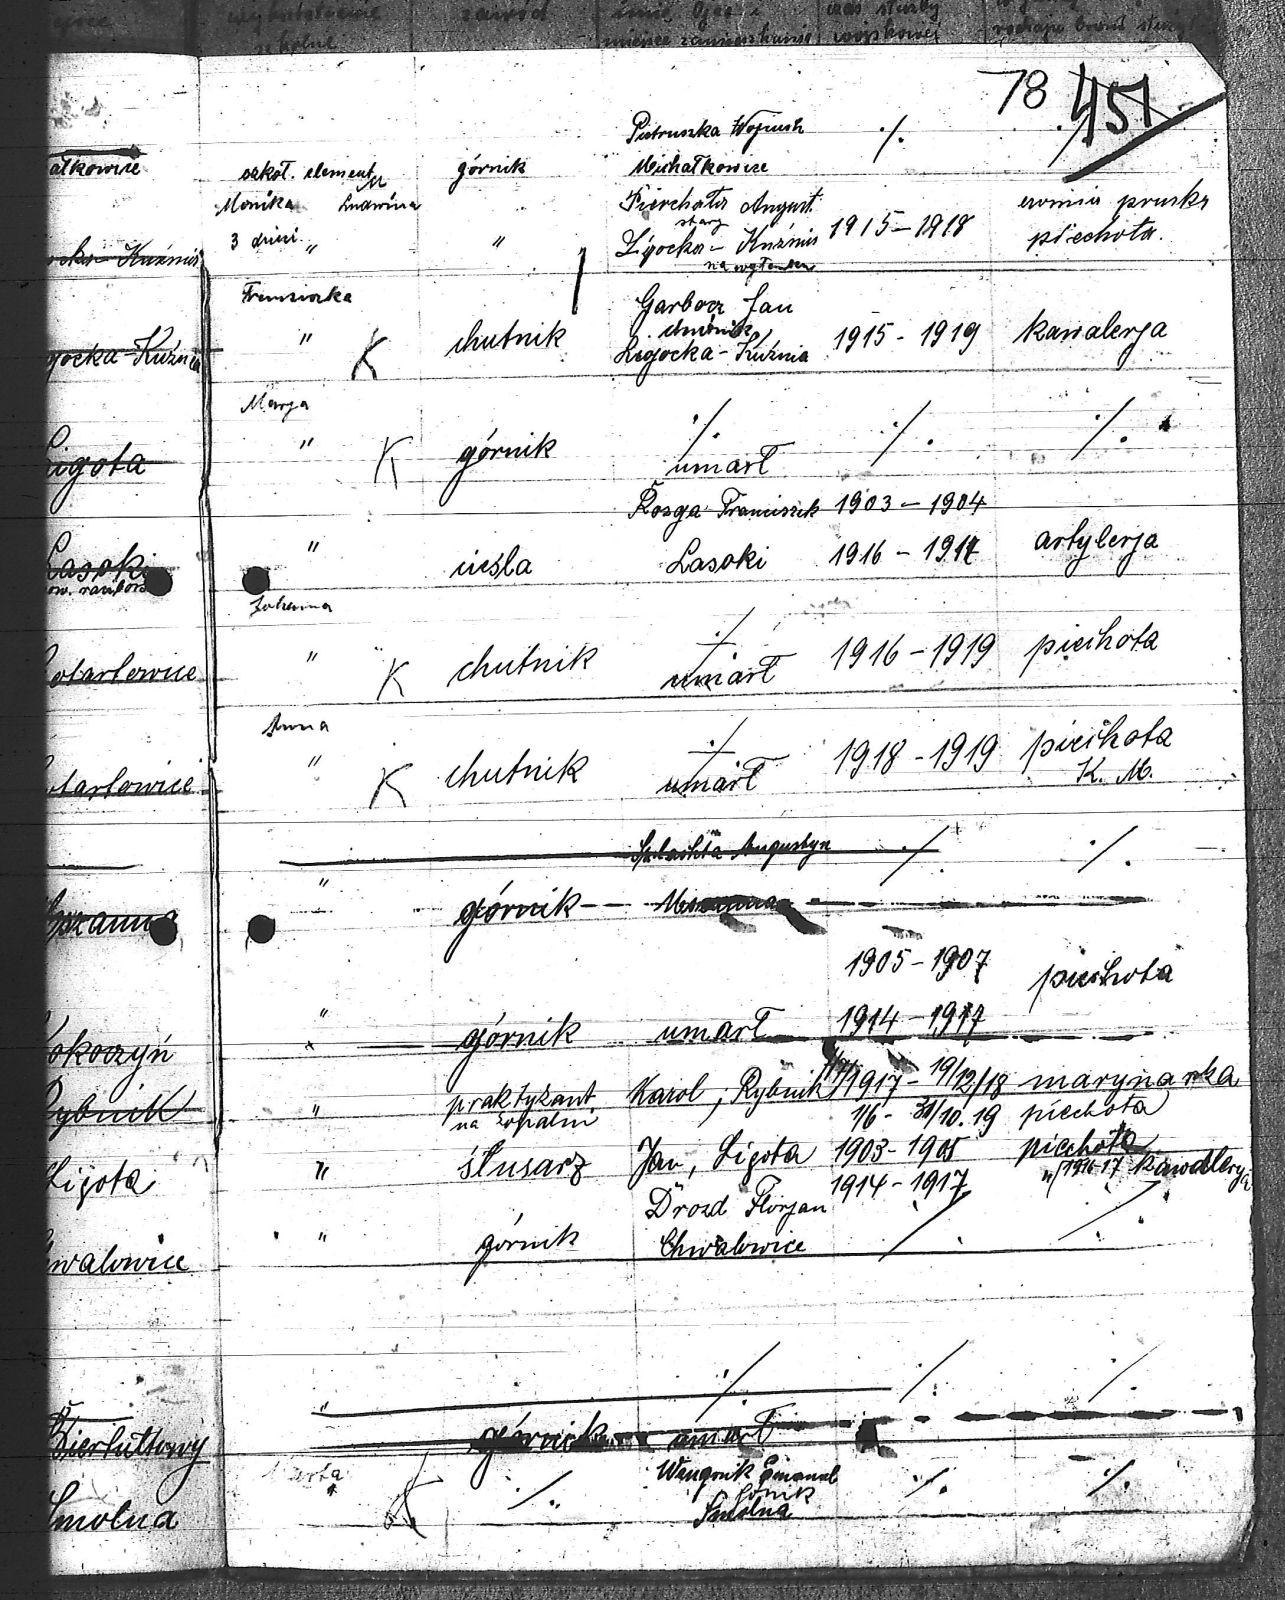 wykształcenie zawód imię Ojca i czas służby
szkolne miejsce zamieszkania wojskowej rodzaju broni
78 451
Pietruszka Wojciech ./.
ałkowice szkoł. element górnik Michałkowice
Monika Ludwina Pierchała August armia pruska
3 dzieci " " stary 1915-1918 piechota.
ocka-Kuźnia Ligocka-Kuźnia
Franciszka Garbocz Jan
" K chutnik 1915-1919 kawalerja
gocka-Kuźnia Ligocka-Kuźnia
Marja ./. ./. ./.
Ligota " K górnik umarł
Rozga Franciszek 1903-1904
Lasoki " cieśla Lasoki 1916-1917 artylerja
Johanna ./.
otartowice " K chutnik umarł 1916-1919 piechota
Anna ./.
otartowice " K chutnik umarł 1918-1919 piechota
K. M.
Augustyn ./. ./.
" górnik
1905-1907
piechota
okoczyn " górnik umarł 1914-1917
Rybnik " praktykant Karol, Rybnik 1917-19/12/18 marynarka
na kopalni 1/6 - 31/10.19 piechota
Ligota " ślusarz Jan, Ligota 1903-1905 piechota
1914-1917 " 1916-17 kawalerja
Drozd Florjan
wałowice " górnik Chwałowice ./. ./.
./. ./. ./.
Biertułtowy " górnik umarł
Marta Wengrnik Emanuel
Smolna " K ./. górnik ./. ./.
Smolna